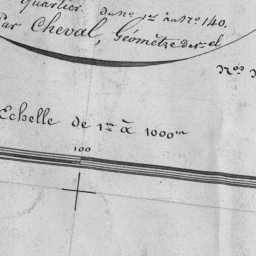 Quartier. du Nº 1er au Nº 140.
Par Cheval, Géomètre de 1re cl
Nos
Echelle de 1m à 1000m
100